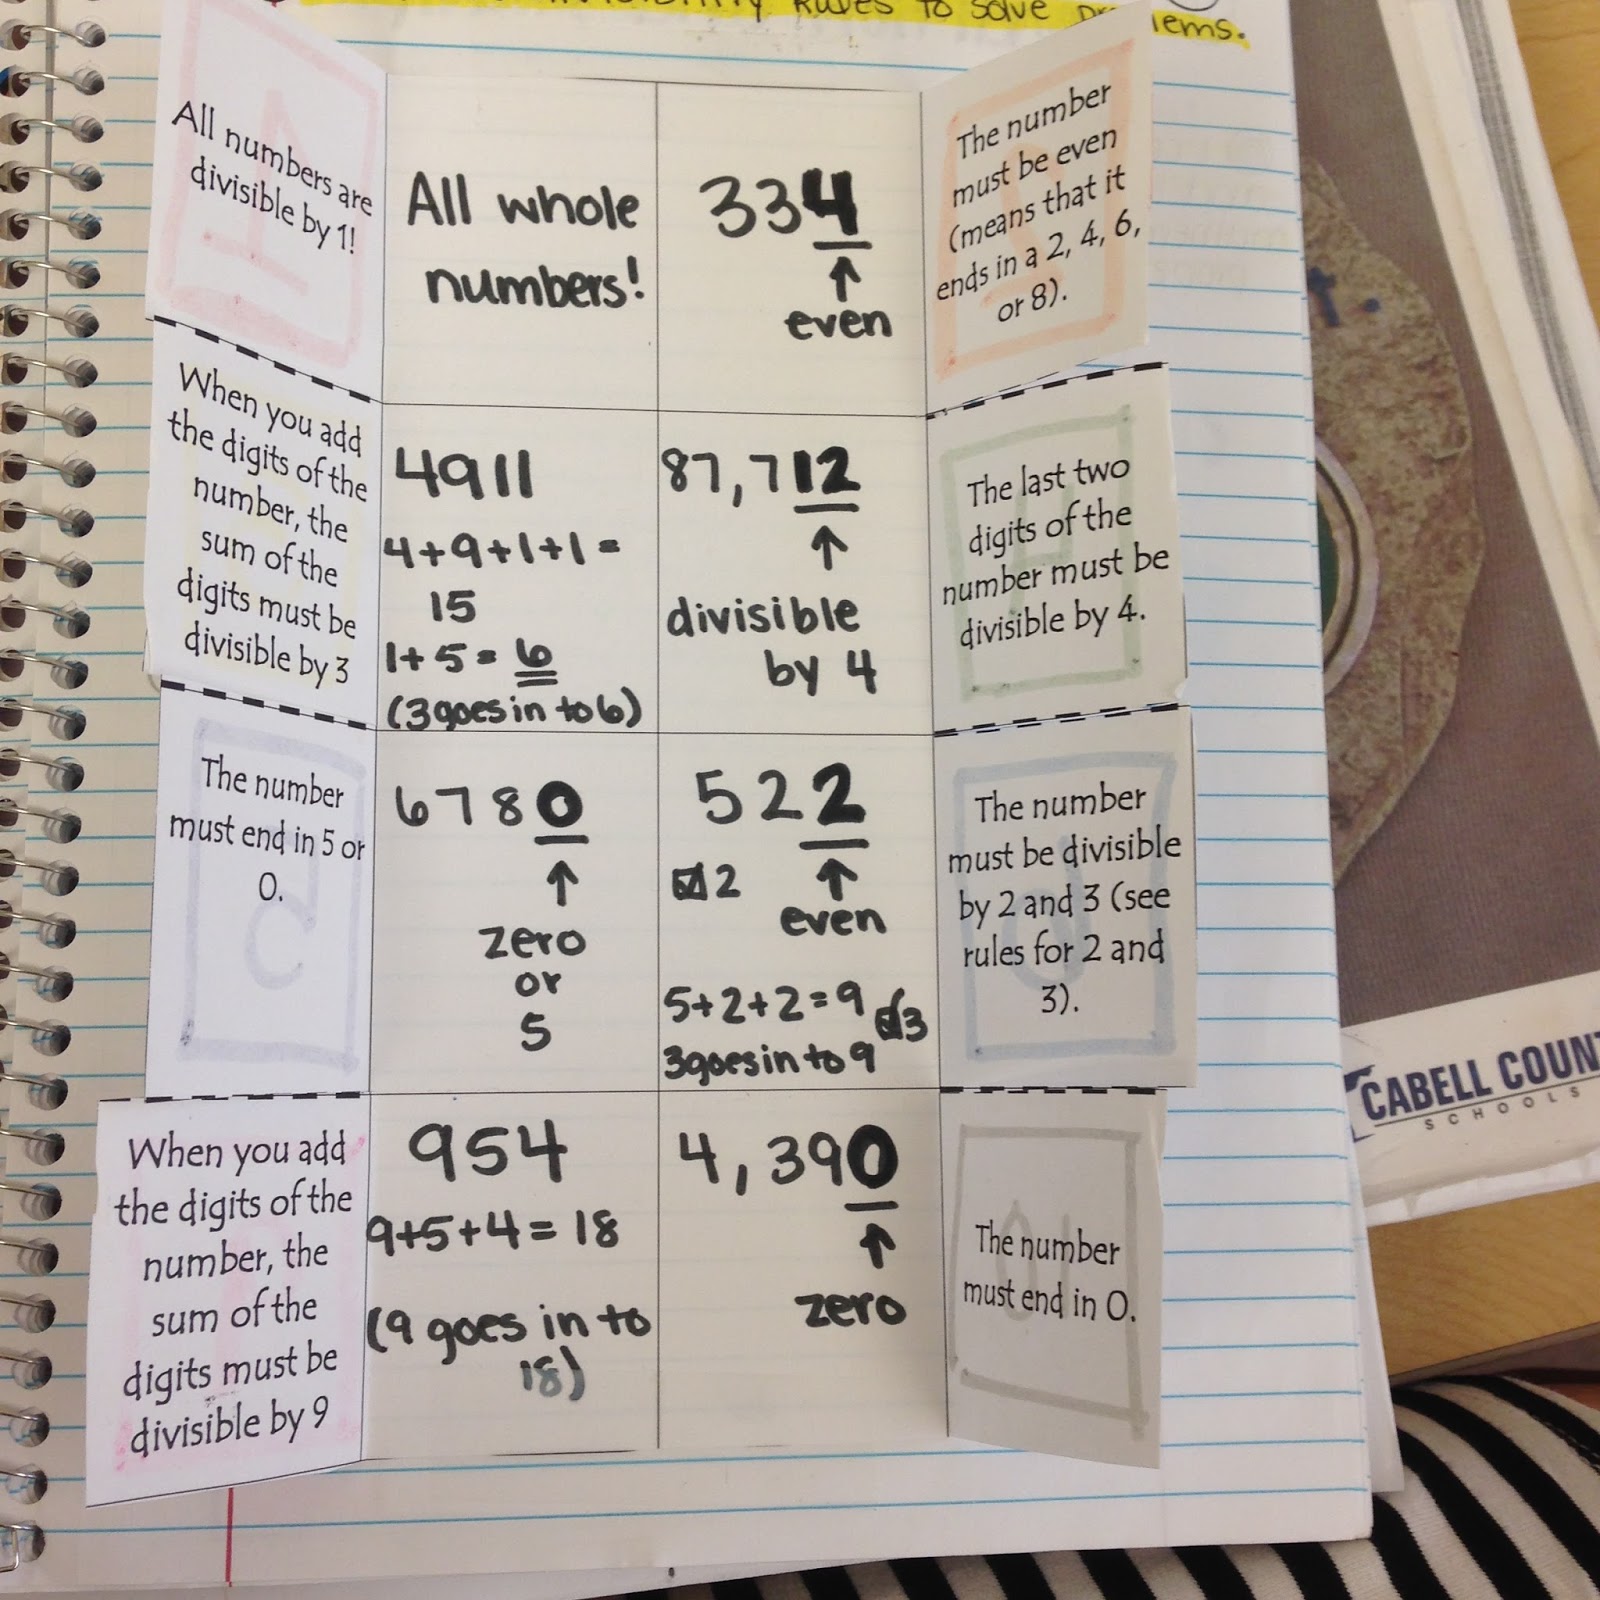 Rules to solve
All numbers are
divisible by 1!
All whole
numbers!
334
↑
even
The number
must be even
(means that it
ends in a 2, 4, 6,
or 8).
When you add
the digits of the
number, the
sum of the
digits must be
divisible by 3
4911
4+9+1+1=
15
1+5=6
(3 goes in to 6)
87,712
↑
divisible
by 4
The last two
digits of the
number must be
divisible by 4.
The number
must end in 5 or
0.
6780
↑
zero
or
5
522
☑2
↑
even
5+2+2=9
☑3
3 goes in to 9
The number
must be divisible
by 2 and 3 (see
rules for 2 and
3).
When you add
the digits of the
number, the
sum of the
digits must be
divisible by 9
954
9+5+4=18
(9 goes in to
18)
4,390
↑
zero
The number
must end in 0.
CABELL
SCHOOLS